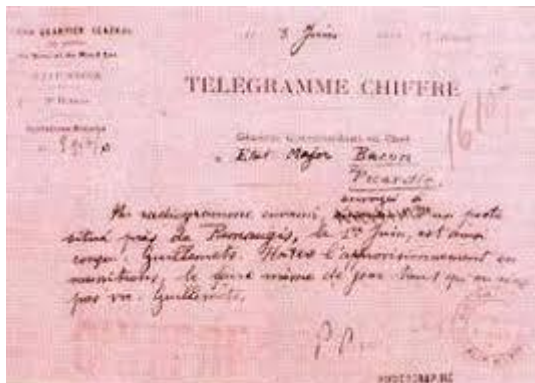 GRAND QUARTIER GÉNÉRAL
du Nord et du Nord Est
ETAT-MAJOR
3e Bureau
3 Juin
TELEGRAMME CHIFFRE
Général Commandant en Chef
à Etat Major Bacon
Picardie
Un radiogramme ennemi, envoyé à un poste
situé près de Remaugis, le 1er Juin, est ainsi
conçu: guillemets. Hâtez l'approvisionnement en
munitions, le faire même de jour tant qu'on n'est
pas vu. guillemets.